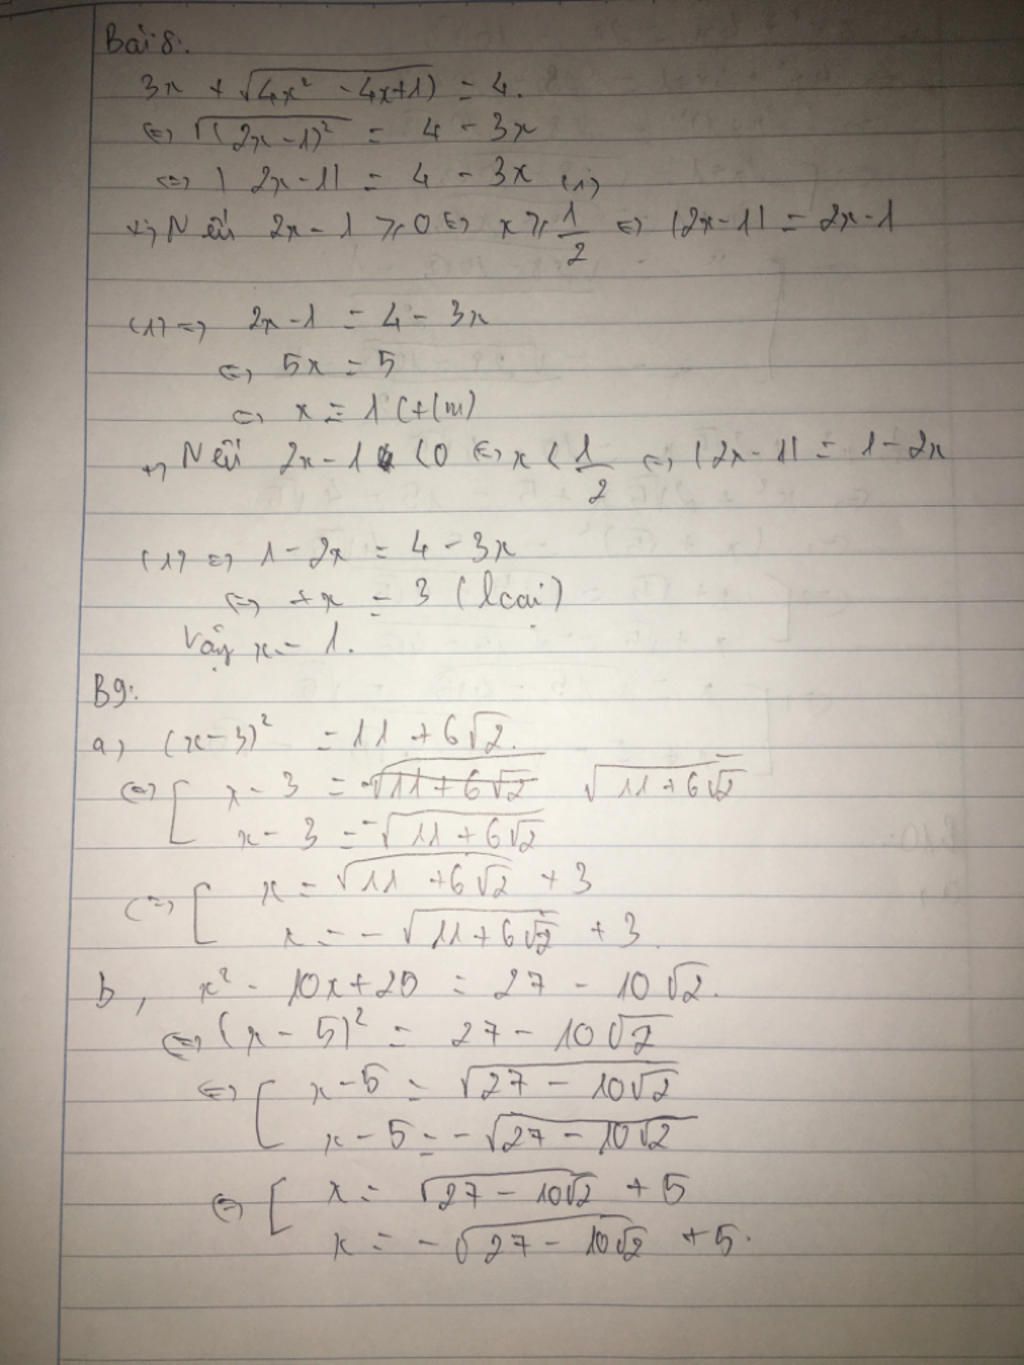 Bài 8:
3x + √(4x² - 4x+1) = 4.
⇔ √(2x-1)² = 4 - 3x
⇔ |2x-1| = 4 - 3x (1)
+, Nếu 2x - 1 ≥ 0 ⇔ x ≥ 1/2 ⇔ |2x-1| = 2x-1
(1) ⇔ 2x-1 = 4 - 3x
⇔ 5x = 5
⇔ x = 1 (t/m)
+, Nếu 2x-1 < 0 ⇔ x < 1/2 ⇔ |2x-1| = 1-2x
(1) ⇔ 1-2x = 4-3x
⇔ +x = 3 (loại)
Vậy x = 1.
B9:
a, (x-3)² = 11 + 6√2.
⇔ [ x - 3 = √(11+6√2) √(11+6√2)
x - 3 = -√(11+6√2)
⇔ [ x = √(11+6√2) + 3
x = -√(11+6√2) + 3.
b, x² - 10x+25 = 27 - 10√2.
⇔ (x-5)² = 27 - 10√2
⇔ [ x-5 = √(27-10√2)
x-5 = -√(27-10√2)
⇔ [ x = √(27-10√2) + 5
x = -√(27-10√2) + 5.